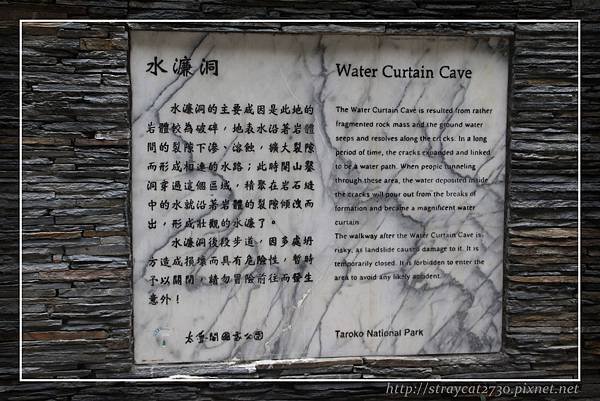 水濂洞
水濂洞的主要成因是此地的
岩體較為破碎，地表水沿著岩體
間的裂隙下滲、溶蝕，擴大裂隙
而形成相連的水路；此時開山鑿
洞穿過這個區域，積聚在岩石縫
中的水就沿著岩體的裂隙傾洩而
出，形成壯觀的水濂了。
水濂洞後段步道，因多處坍
方造成損壞而具有危險性，暫時
予以關閉，請勿冒險前往而發生
意外！
太魯閣國家公園
Water Curtain Cave
The Water Curtain Cave is resulted from rather
fragmented rock mass and the ground water
seeps and resolves along the cricks. In a long
period of time, the cracks expanded and linked
to be a water path. When people tunneling
through these area, the water deposited inside
the cracks will pour out from the breaks of
formation and became a magnificent water
curtain
The walkway after the Water Curtain Cave is
risky, as landslide caused damage to it. It is
temporarily closed. It is forbidden to enter the
area to avoid any likely accident.
Taroko National Park
http://straycat2730.pixnet.net